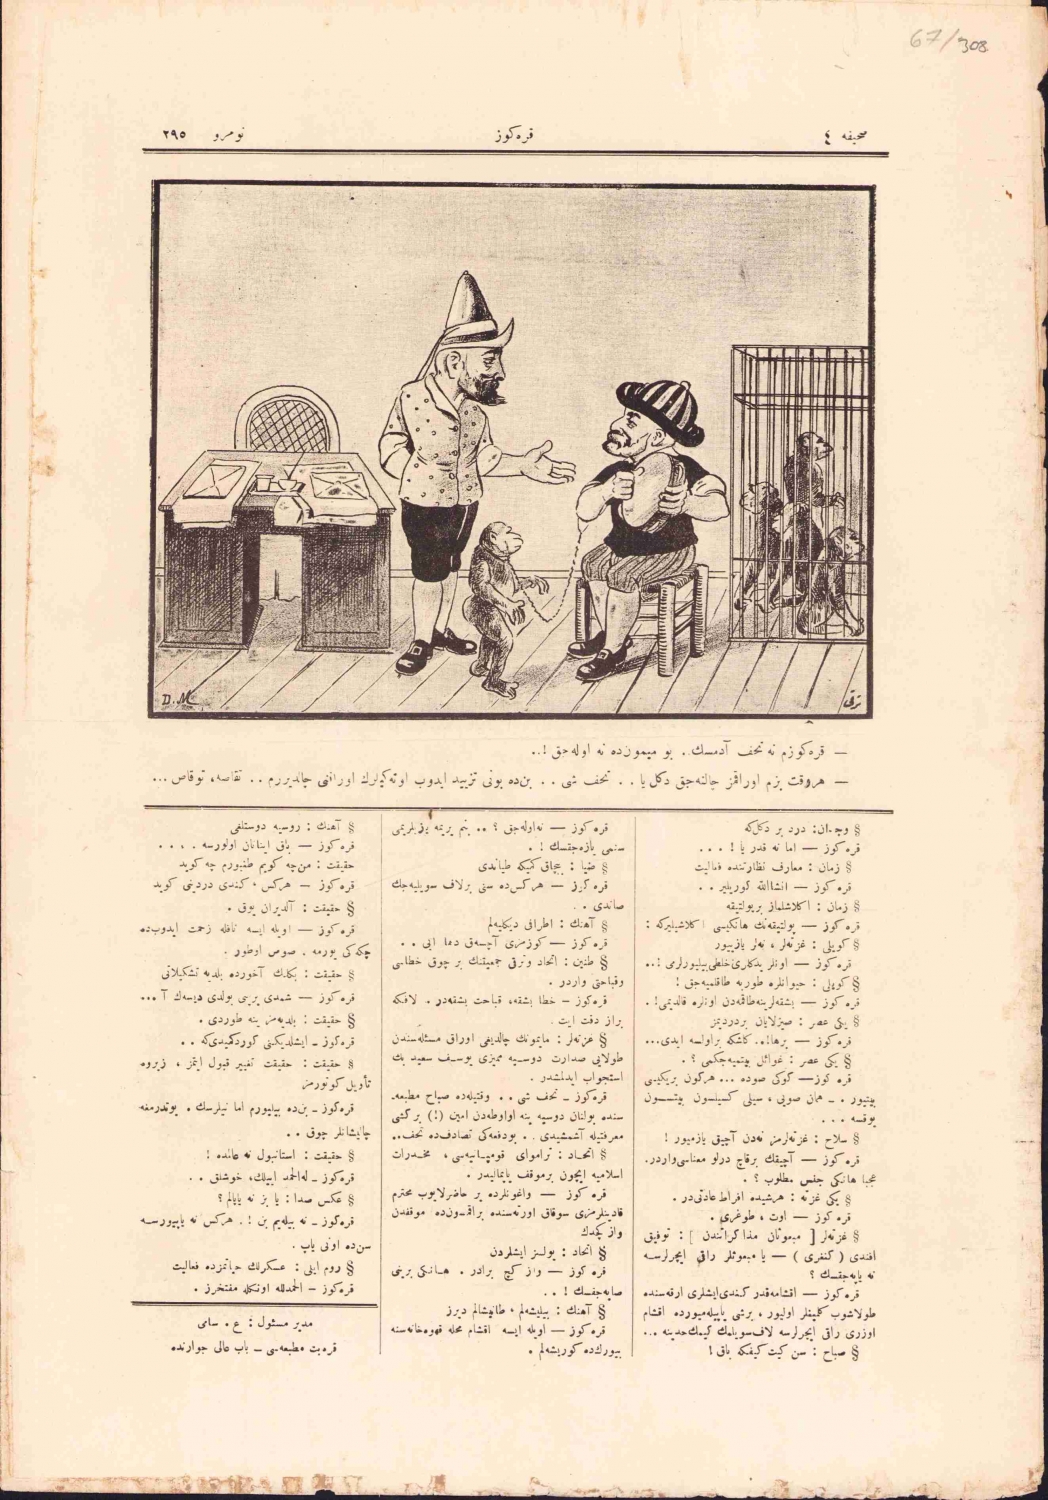 67/308
صحیفه ٤
قره‌کوز
نومرو ٢٩٥
D. M.
ترقی
— قره‌کوزم نه تحف آدمسك.. بو میمون‌ده نه اوله‌جق !..
— هروقت بزم اوراقمز چالنه‌جق دکل یا . . تحف شی . . بن‌ده بونی تربیه ایدوب اوته‌کیلرك اوراقنی چالدیررم . . تقاصه، توقاص ...
§ وجدان: درد بر دکل‌که
قره کوز — اما نه قدر یا ! . . .
§ زمان : معارف نظارتنده فعالیت
قره کوز — انشاالله کوریلیر . .
§ زمان : اکلاشلماز بر پولتیقه
قره کوز — پولتیقه‌نك هانکیسی اکلاشیلیرکه :
§ کویلی : غزته‌لر ، نه‌لر یازییور
قره کوز — اونلر یدکاری خلطی بیلیورلرمی !..
§ کویلی : حیوانلره طوربه طاقلمیه‌جق !
قره کوز — بشقه‌لرینه طاقمه‌دن اونلره قالدیمی! .
§ یکی عصر : صیزلایان بر دردیمز
قره کوز — برهـا!.. کاشکه بر اولسه ایدی...
§ یکی عصر : غوائل بیتمیه‌جکمی ؟ .
قره کوز— کوکی صوده ... هرکون بریکیسی
بیتیور . . ـ همان صویی ، سیلی کسیلسون بیتسـون
یوقسه . . .
§ سلاح : غزته‌لرمز نه‌دن آچیق یازمیور !
قره کوز — آچیقك برقاچ درلو معناسی واردر.
عجبا هانکی جنس مطلوب ؟ .
§ یکی غزته : هرشیده افراط عادتی‌در .
قره کوز — اوت ، طوغری .
§ غزته‌لر [ مبعوثان مذاکراتندن ] : توفیق
افندی ( کنفری ) — یا مبعوثلر راقی ایچرلرسـه
نه یاپه‌جقسك ؟
قره کوز — اقشامه‌قدر کندی ایشلری ارقه‌سنده
طولاشوب کلمینلر اولیور ، برشی یاپیله‌میورده اقشام
اوزری راقی ایچرلرسه لاف سویلمك کیمك حدینه ...
§ صباح : سن کیت کیفکه باق !
قره کوز — نه‌اوله‌جق ؟ .. بنم یریمه
سنمی یازه‌جقسك ! .
§ ضیا : بیچاق کمیکه طیاندی
قره کوز — هرکس‌ده سنی برلاف سویلیه‌جك
صاندی . .
§ آهنك : اطرافی دیکلیه‌لم
قره کوز — کوزمزی آچسه‌ق دها ایی . .
§ طنین : اتحاد و ترقی جمعیتنك بر چوق خطاسی
و قباحتی واردر .
قره کوز — خطا بشقه، قباحت بشقه‌در . لافکه
براز دقت ایت .
§ غزته‌لر : مایمونك چالدیغی اوراق مسئله‌سندن
طولایی صدارت دوسـیه ممیزی یوسـف سعید بك
استجواب ایدلمشدر .
قره‌کوز ـ تحف شی . . وقتیله‌ده صباح مطبعه‌
سنده بولنان دوسیه ینه اواوطه‌دن امین (!) بر کشی
معرفتیله آشمشیدی . . بودفعه‌کی تصادف‌ده تحف..
§ اتحـاد : تراموای قومپـانیه‌سی ، مخـدرات
اسلامیه ایچون برموقف یاپمالیدر .
قره کوز — واغونلرده بر حاضرلایوب محترم
قادینلرمزی سوقاق اورته‌سنده براقمـون‌ده موقفدن
واز کچدك
§ اتحاد : پولـیز ایشلردن
قره کوز — واز کچ برادر . هـانـکی برینی
صایه‌جقسك ! . .
§ آهنك : بیلیشه‌لم ، طانیشالم دیرز
قره کوز — اویله ایسه اقشام محله قهوه‌خانه‌سنه
بیورك‌ده کوریشه‌لم .
§ آهنك : روسیه دوستلغی
قره‌کوز — باق اینانان اولورسه . . . .
حقیقت : من‌چه کویم طنبورم چه کوید
قره‌کوز — هرکس ، کندی دردینی کوید
§ حقیقت : آلدیران یوق .
قره‌کوز — اویله ایسه نافله زحمت ایدوب‌ده
چکه‌کی یورمه . صوص اوطور .
§ حقیقت : بکلك آخورده بلدیه تشکیلاتی
قره‌کوز — شمدی یرینی بولدی دیسه‌ك آ ...
§ حقیقت : بلدیه‌مز ینه طوردی .
قره‌کوز ـ ایشلدیکنی کوردکمیدی‌که . .
§ حقیقت : حقیقت تغییر قبول ایتمز ، زیروه
تأویل کوتورمز
قره‌کوز ـ بن‌ده بیلیورم اما نیلرسك . یوتدرمغه
چالیشانلر چوق . .
§ حقیقت : استانبول نه عالمده !
قره‌کوز ـ له‌الحمد ایـیلك، خوشلق . .
§ عکس صدا : یا بز نه یاپالم ؟
قره‌کوز ـ نه بیله‌یم بن ! . هرکس نه یاپیورسـه
سن‌ده اونی یاپ .
§ روم ایلی : عسکرلك حیاتمزده فعالیت
قره‌کوز — الحمدلله اونکله مفتخرز .
مدیر مسئول : ع . سامی
قره‌بت مطبعه‌سی ـ باب عالی جوارنده